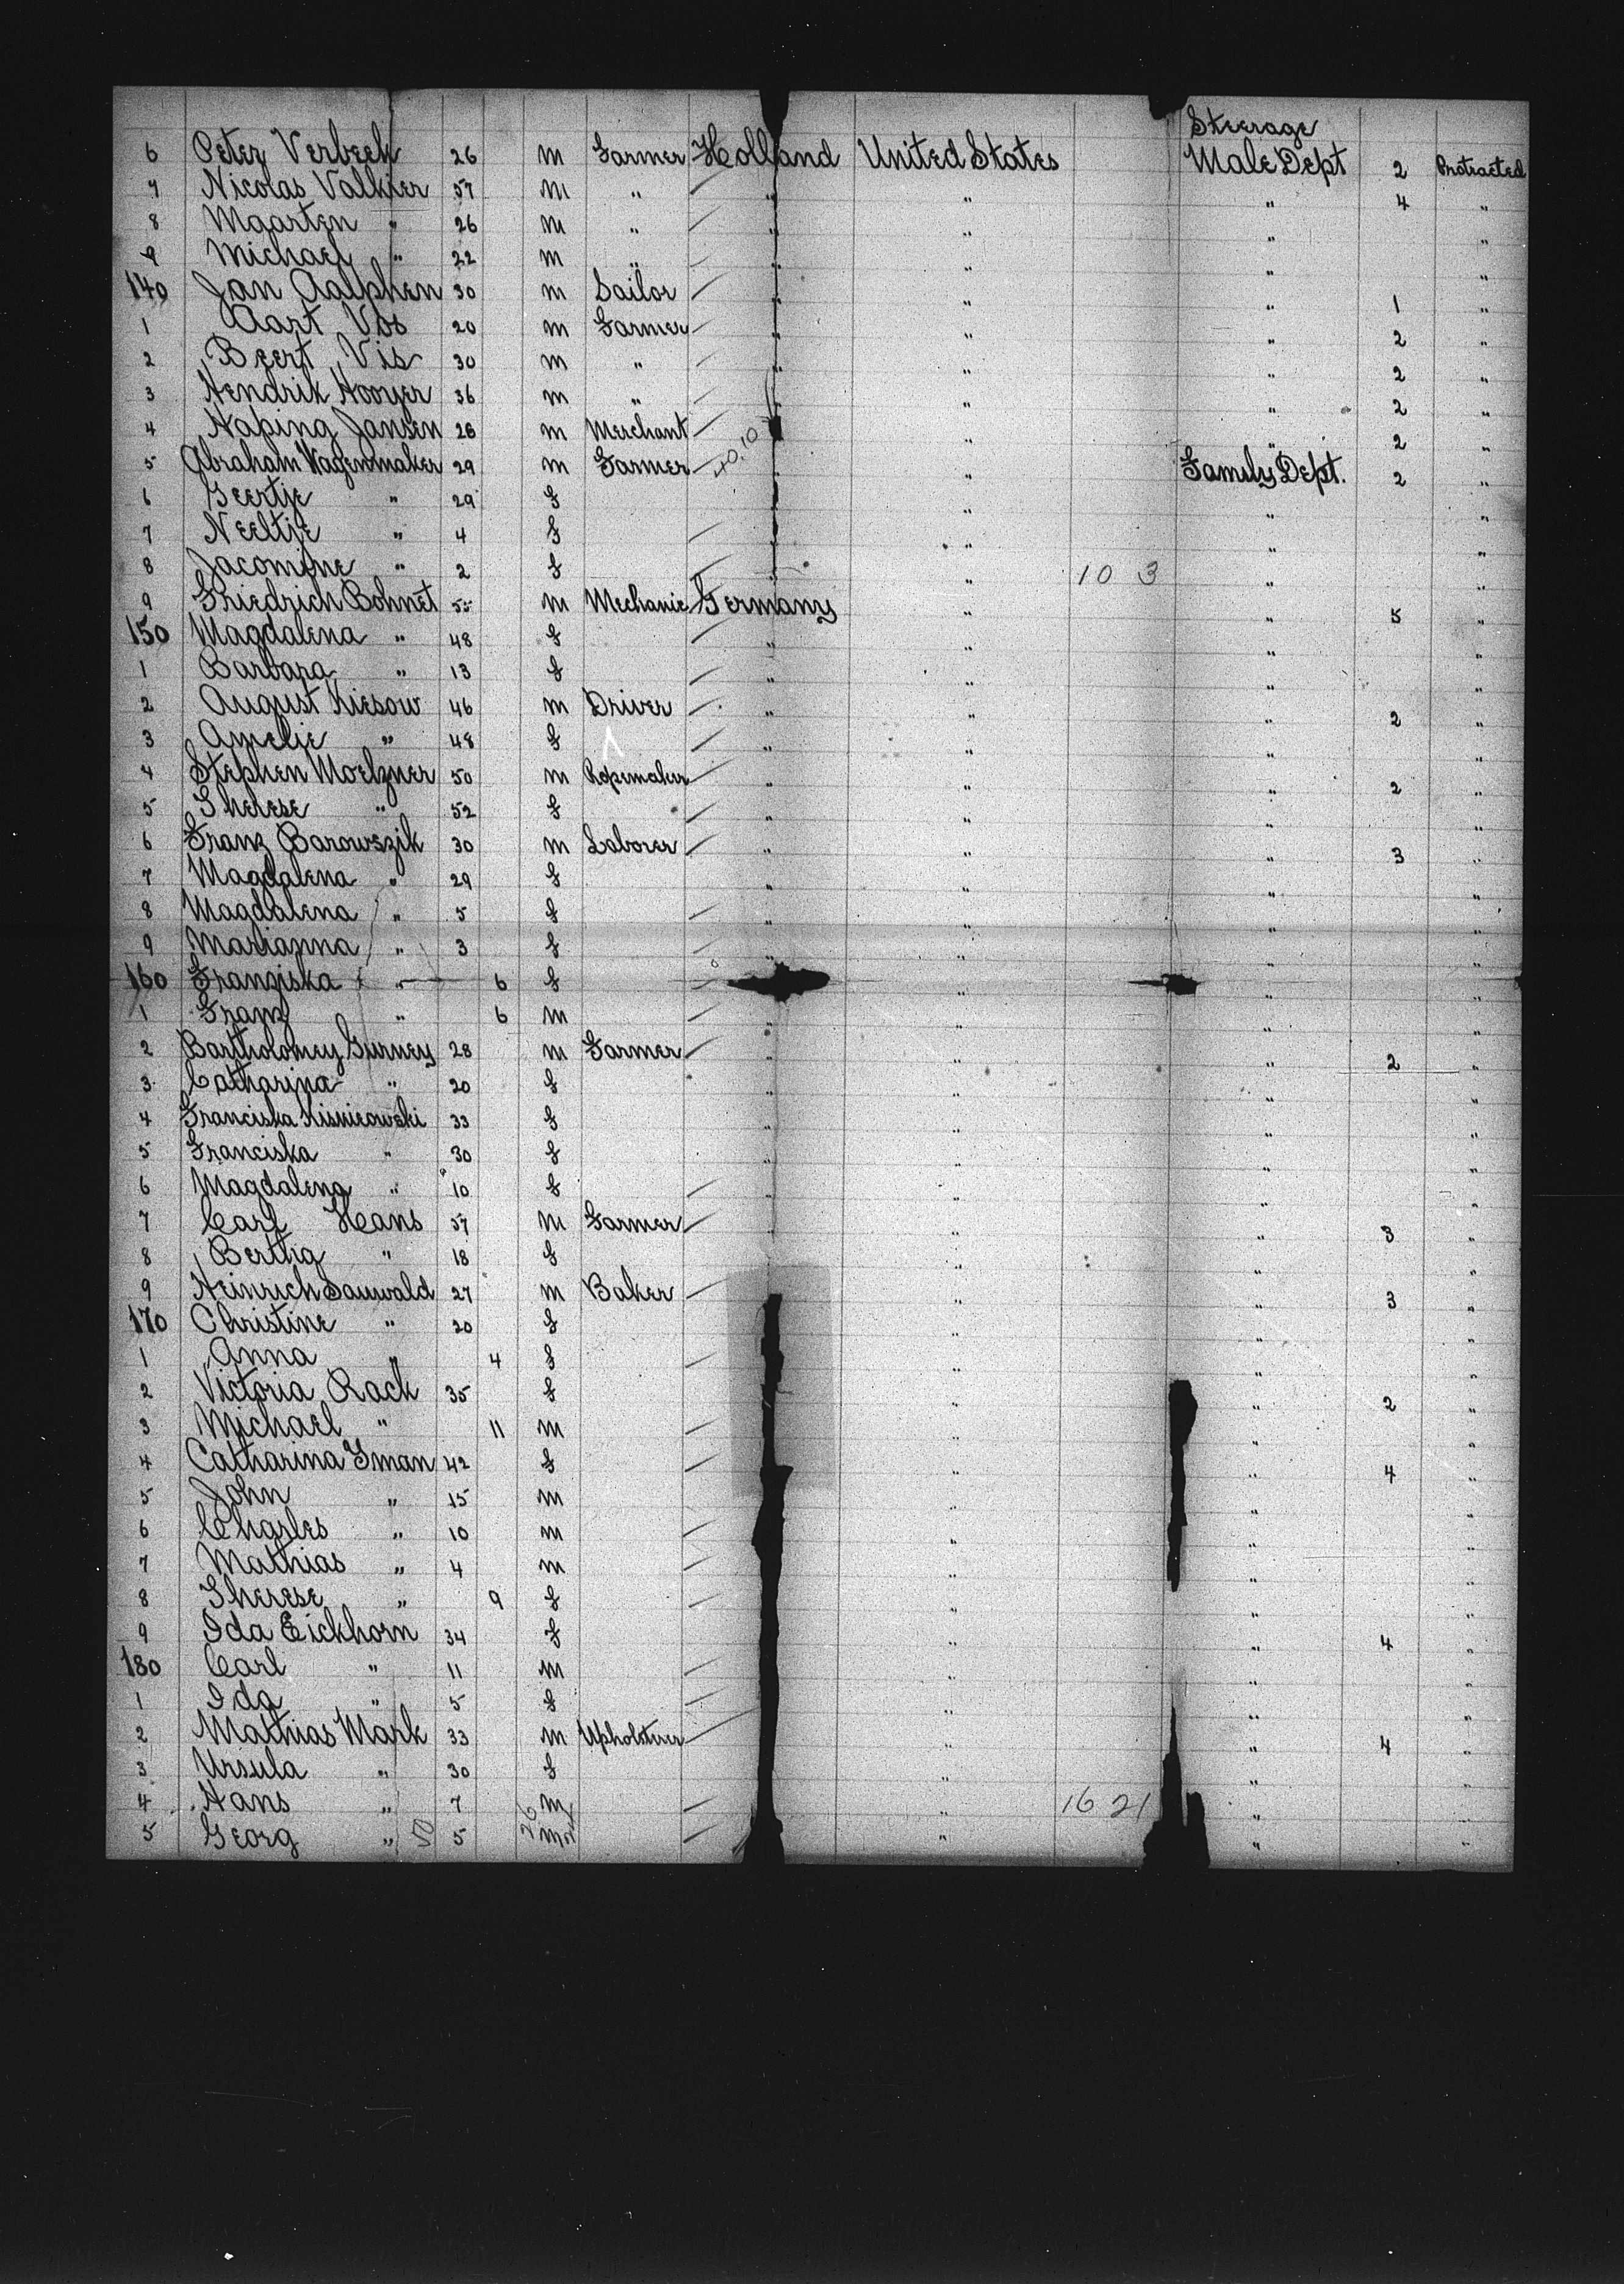 Steerage
6 Peter Verbeek 26 m Farmer Holland United States Male Dept 2 Protracted
7 Nicolas Valkier 57 m " " " " 4 "
8 Maarten " 26 m " " " " "
9 Michael " 22 m " " " " "
140 Jan Aalphen 30 m Sailor " " " 1 "
1 Aart Vos 20 m Farmer " " " 2 "
2 Beert Vis 30 m " " " " 2 "
3 Hendrik Hooyer 36 m " " " " 2 "
4 Haping Jansen 28 m Merchant " " " 2 "
5 Abraham Wagenmaker 29 m Farmer " " Family Dept. 2 "
6 Geertje " 29 f " " " "
7 Neeltje " 4 f " " " "
8 Jacomine " 2 f " " 10 3 " "
9 Friedrich Bohnet 55 m Mechanic Germany " " 5 "
150 Magdalena " 48 f " " " "
1 Barbara " 13 f " " " "
2 August Kiesow 46 m Driver " " " 2 "
3 Amelie " 48 f " " " "
4 Stephen Moelzner 50 m Ropemaker " " " 2 "
5 Therese " 52 f " " " "
6 Franz Barowszik 30 m Laborer " " " 3 "
7 Magdalena " 29 f " " " "
8 Magdalena " 5 f " " " "
9 Marianna " 3 f " " " "
160 Franziska " 6 f " " "
1 Franz " 6 m " " " "
2 Bartholomey Gurney 28 m Farmer " " " 2 "
3 Catharina " 20 f " " " "
4 Franciska Kisnieowski 33 f " " " "
5 Franciska " 30 f " " " "
6 Magdalena " 10 f " " " "
7 Carl Hans 57 m Farmer " " " 3 "
8 Bertha " 18 f " " "
9 Heinrich Sauwald 27 m Baker " " 3 "
170 Christine " 20 f " " "
1 Anna " 4 f " " "
2 Victoria Rack 35 f " " 2 "
3 Michael " 11 m " " "
4 Catharina Iman 42 f " " 4 "
5 John " 15 m " " "
6 Charles " 10 m " " "
7 Mathias " 4 m " " "
8 Therese " 9 f " " "
9 Ida Eickhorn 34 f " " 4 "
180 Carl " 11 m " " "
1 Ida " 5 f " " "
2 Mathias Mark 33 m Upholsterer " " 4 "
3 Ursula " 30 f " " "
4 Hans " 7 m " 16 21 " "
5 Georg " 5 m " " "